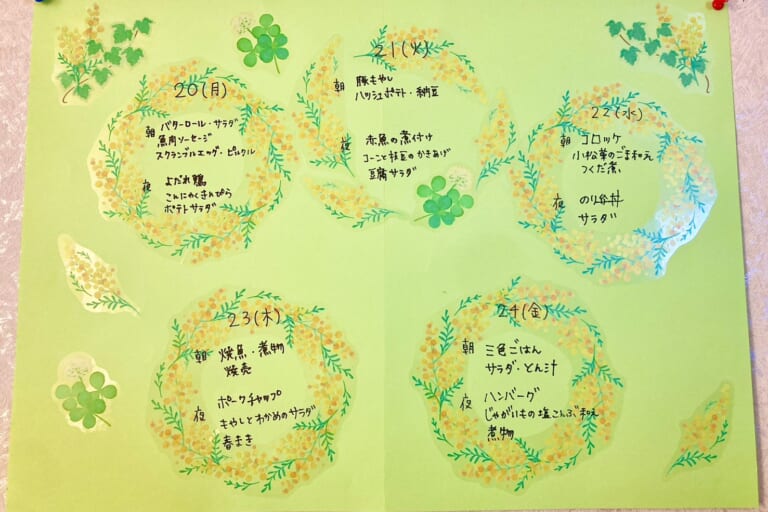 20(月)
朝 バターロール・サラダ
魚肉ソーセージ
スクランブルエッグ・ピルクル
夜 よだれ鶏
こんにゃくきんぴら
ポテトサラダ
21(火)
朝 豚もやし
ハッシュポテト・納豆
夜 赤魚の煮付け
コーンと枝豆のかきあげ
豆腐サラダ
22(水)
朝 コロッケ
小松菜のごま和え
つくだ煮
夜 のり弁丼
サラダ
23(木)
朝 焼魚・煮物
焼売
夜 ポークチャップ
もやしとわかめのサラダ
春まき
24(金)
朝 三色ごはん
サラダ・とん汁
夜 ハンバーグ
じゃがいもの塩こんぶ和え
煮物